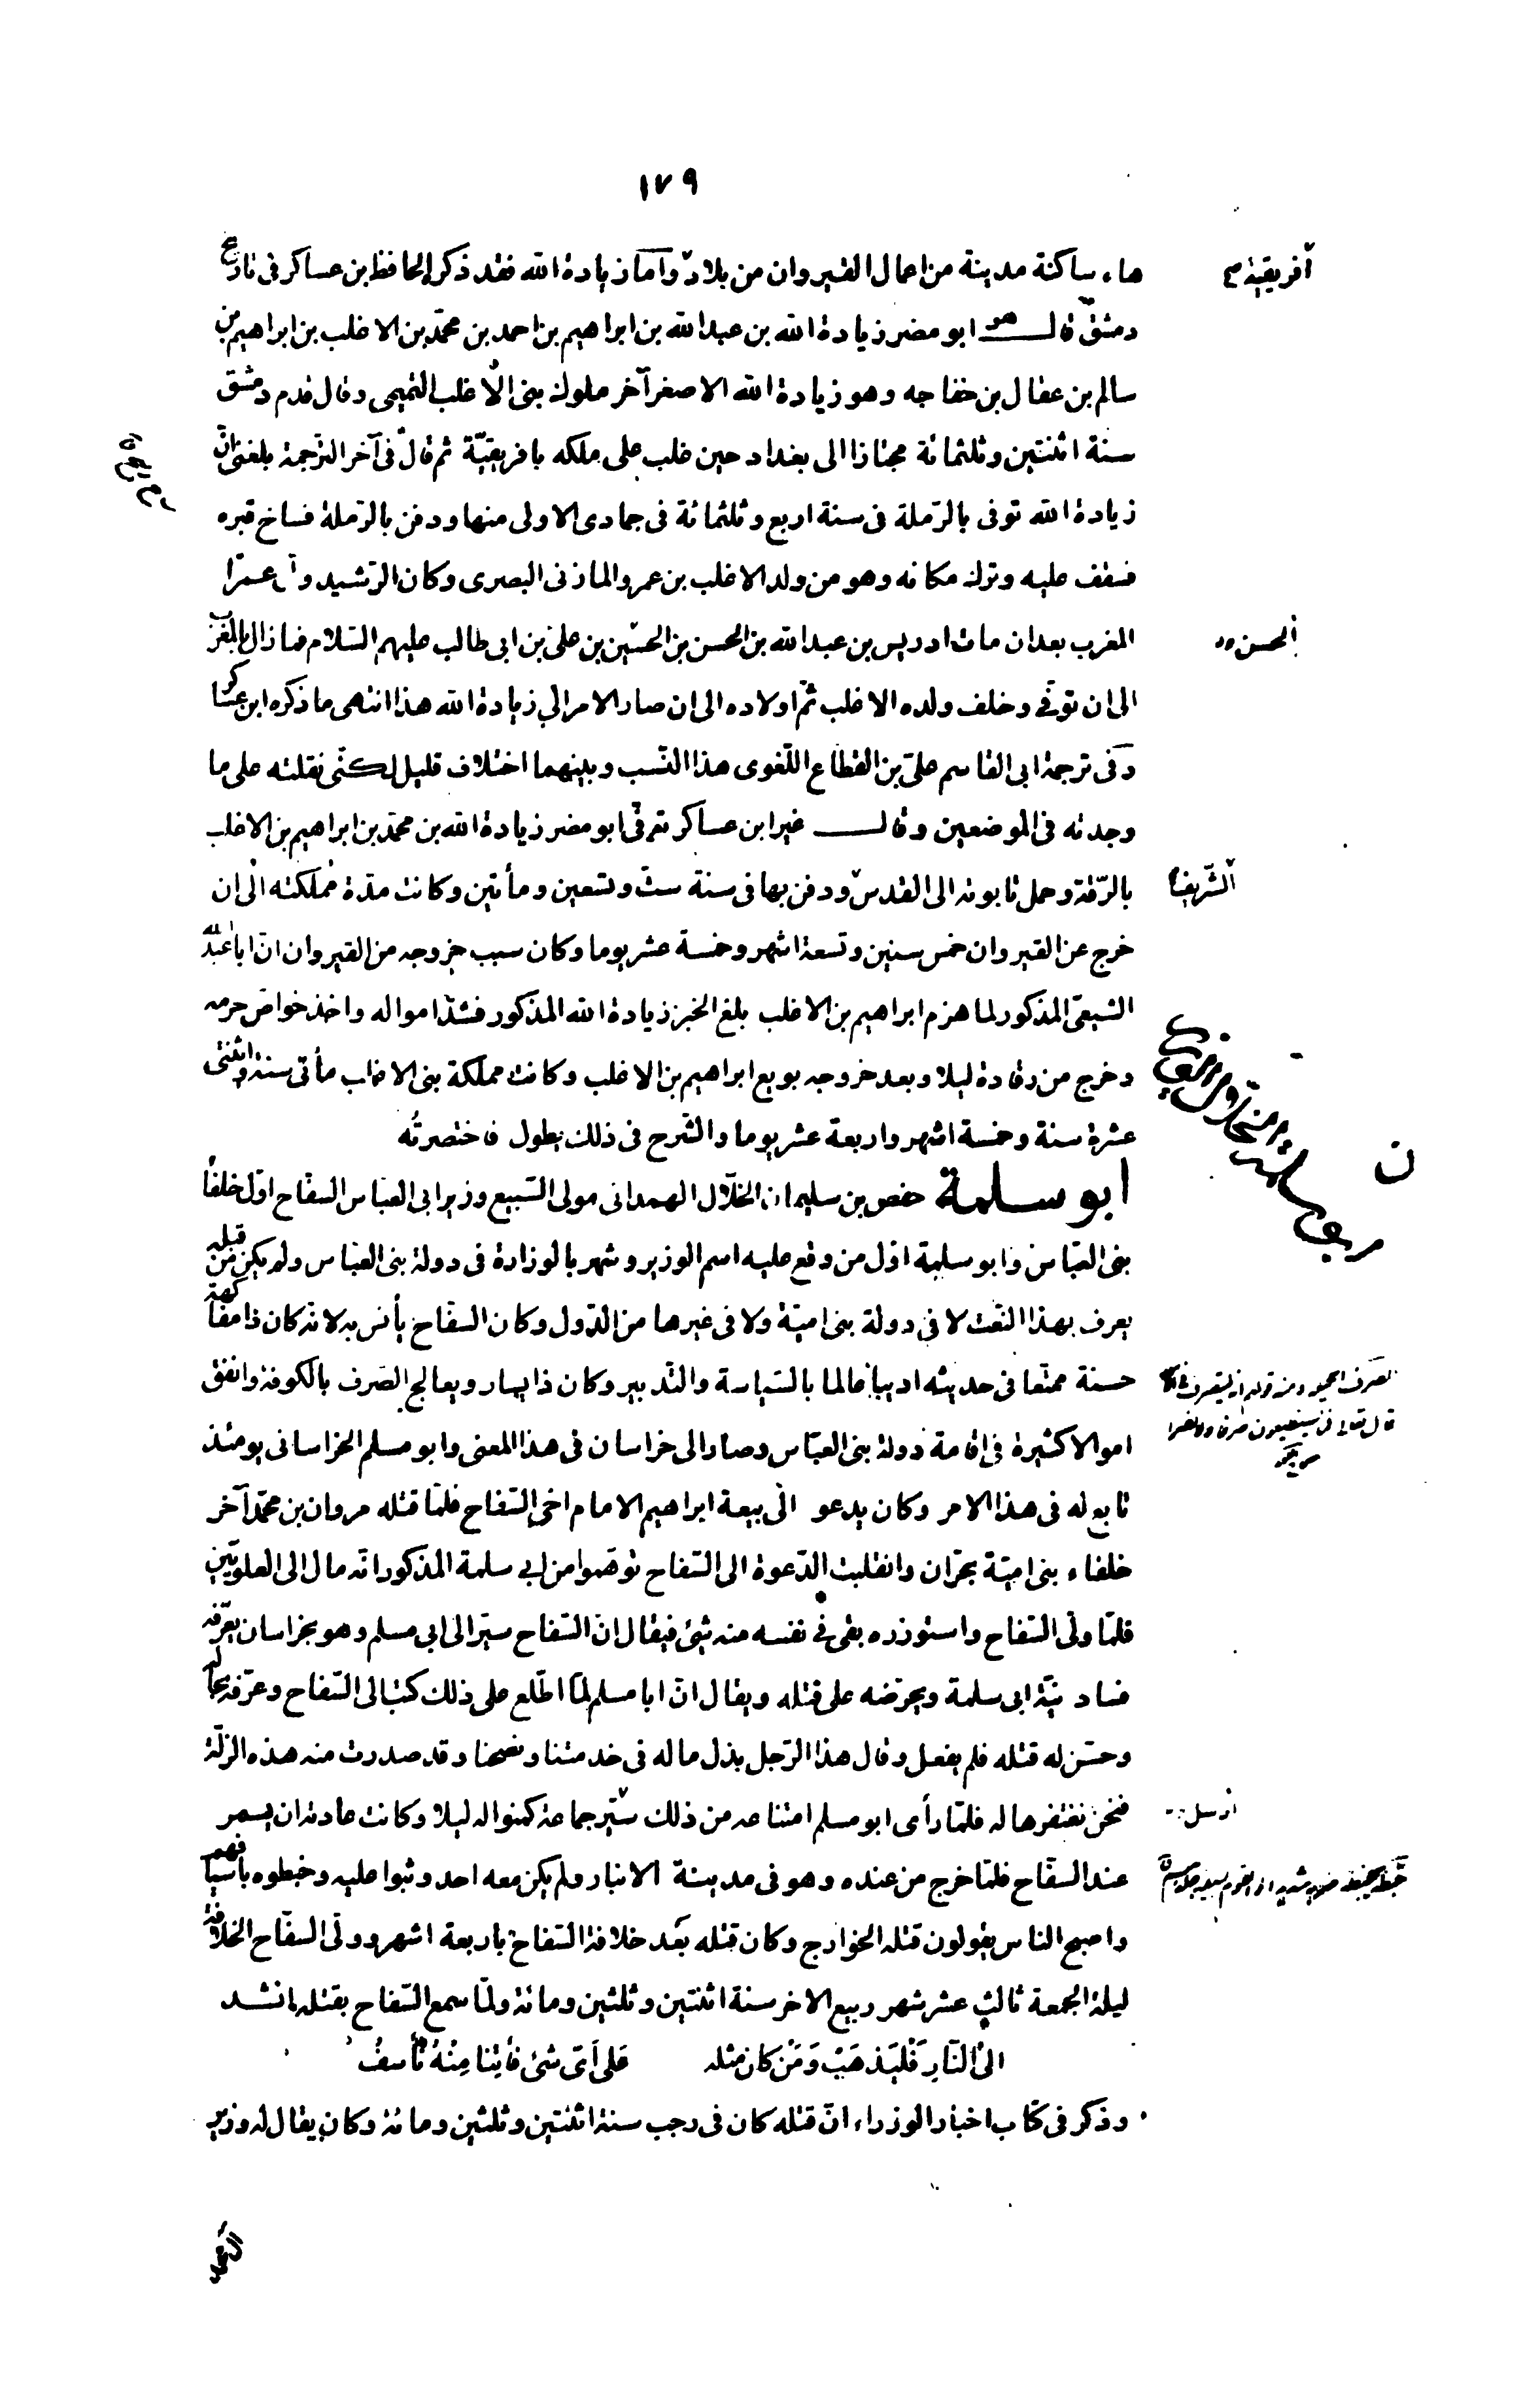 ١٧٩
هاء ساكنة مدينة من اعمال القيروان من بلاد وامّا زيادة الله فقد ذكره الحافظ بن عساكر فى تاريخ
افريقية صح
دمشق قال هو ابو مضر زيادة الله بن عبد الله بن ابراهيم بن احمد بن محمّد بن الاغلب بن ابراهيم بن
سالم بن عقال بن خفاجه وهو زيادة الله الاصغر آخر ملوك بنى الاغلب التميمى وقال قدم دمشق
سنة اثنتين وثلثمائة مجتازا الى بغداد حين غلب على ملكه بافريقيّة ثم قال فى آخر الترجمة بلغنى انّ
زيادة الله توفى بالرّملة فى سنة اربع وثلثمائة فى جمادى الاولى منها ودفن بالرّملة فساخ قبره
فسقف عليه وترك مكانه وهو من ولد الاغلب بن عمرو المازنى البصرى وكان الرّشيد ولّى عمرًا
المغرب بعد ان مات ادريس بن عبد الله بن الحسن بن الحسين بن علىّ بن ابى طالب عليهم السّلام فما زال بالمغرب
الحسن
الى ان توفّى وخلف ولده الاغلب ثمّ اولاده الى ان صار الامر الى زيادة الله هذا انتهى ما ذكره ابن عساكر
وفى ترجمة ابى القاسم علىّ بن القطّاع اللّغوى هذا النّسب وبينهما اختلاف قليل لكنّى نقلته على ما
وجدته فى الموضعين وقال غير ابن عساكر توفّى ابو مضر زيادة الله بن محمّد بن ابراهيم بن الاغلب
بالرّقة وحمل تابوته الى القدس ودفن بها فى سنة ستّ وتسعين ومأتين وكانت مدّة مملكته الى ان
الشّريف
خرج عن القيروان خمس سنين وتسعة اشهر وخمسة عشر يوما وكان سبب خروجه من القيروان انّ ابا عبد الله
الشيعىّ المذكور لما هزم ابراهيم بن الاغلب بلغ الخبر زيادة الله المذكور فشدّ امواله واخذ خواصّ حرمه
وخرج من رقادة ليلا وبعد خروجه بويع ابراهيم بن الاغلب وكانت مملكة بنى الاغلب مأتى سنة واثنتى
عشرة سنة وخمسة اشهر واربعة عشر يوما والشّرح فى ذلك يطول فاختصرتُه
ابو سلمة حفص بن سليمان الخلّال الهمدانى مولى السّبيع وزير ابى العبّاس السفّاح اوّل خلفاء
بنى العبّاس وابو سلمة اوّل من وقع عليه اسم الوزير وشهر بالوزارة فى دولة بنى العبّاس ولم يكن من قبله
يعرف بهذا النّعت لا فى دولة بنى اميّة ولا فى غيرها من الدّول وكان السفّاح يأنس به لانّه كان ذا مفاكهة
حسنة ممتّعا فى حديثه اديبا عالما بالسّياسة والتّدبير وكان ذا يسار ويعالج الصّرف بالكوفة وانفق
اموالا كثيرة فى اقامة دولة بنى العبّاس وصار الى خراسان فى هذا المعنى وابو مسلم الخراسانى يومئذ
تابع له فى هذا الامر وكان يدعو الى بيعة ابراهيم الامام اخى السّفاح فلمّا قتله مروان بن محمّد آخر
خلفاء بنى اميّة بحرّان وانقلبت الدّعوة الى السّفاح توهّموا من ابى سلمة المذكور انّه مال الى العلويّين
فلمّا ولّى السّفاح واستوزره بقى فى نفسه منه شئ فيقال انّ السّفاح سيّر الى ابى مسلم وهو بخراسان يعرّفه
فساد نيّة ابى سلمة ويحرّضه على قتله ويقال انّ ابا مسلم لمّا اطّلع على ذلك كتب الى السّفاح وعرّفه بحاله
وحسّن له قتله فلم يفعل وقال هذا الرّجل بذل ماله فى خدمتنا ونصحنا وقد صدرت منه هذه الزلّة
فنحن نغتفرها له فلمّا رأى ابو مسلم امتناعه من ذلك سيّر جماعة كمنوا له ليلا وكانت عادته ان يسمر
ارسل
عند السفّاح فلمّا خرج من عنده وهو فى مدينة الانبار ولم يكن معه احد وثبوا عليه وخبطوه باسيافهم
واصبح الناس يقولون قتله الخوارج وكان قتله بعد خلافة السّفاح باربعة اشهر وولّى السفّاح الخلافة
ليلة الجمعة ثالث عشر شهر ربيع الاخر سنة اثنتين وثلثين ومائة ولمّا سمع السّفاح بقتله انشد
الى النّارِ فَليَذهَبْ وَمَن كان مثله عَلى أَىّ شئ فاتنا مِنْهُ نَأسفُ
وذكر فى كتاب اخبار الوزراء انّ قتله كان فى رجب سنة اثنتين وثلثين ومائة وكان يقال له وزير